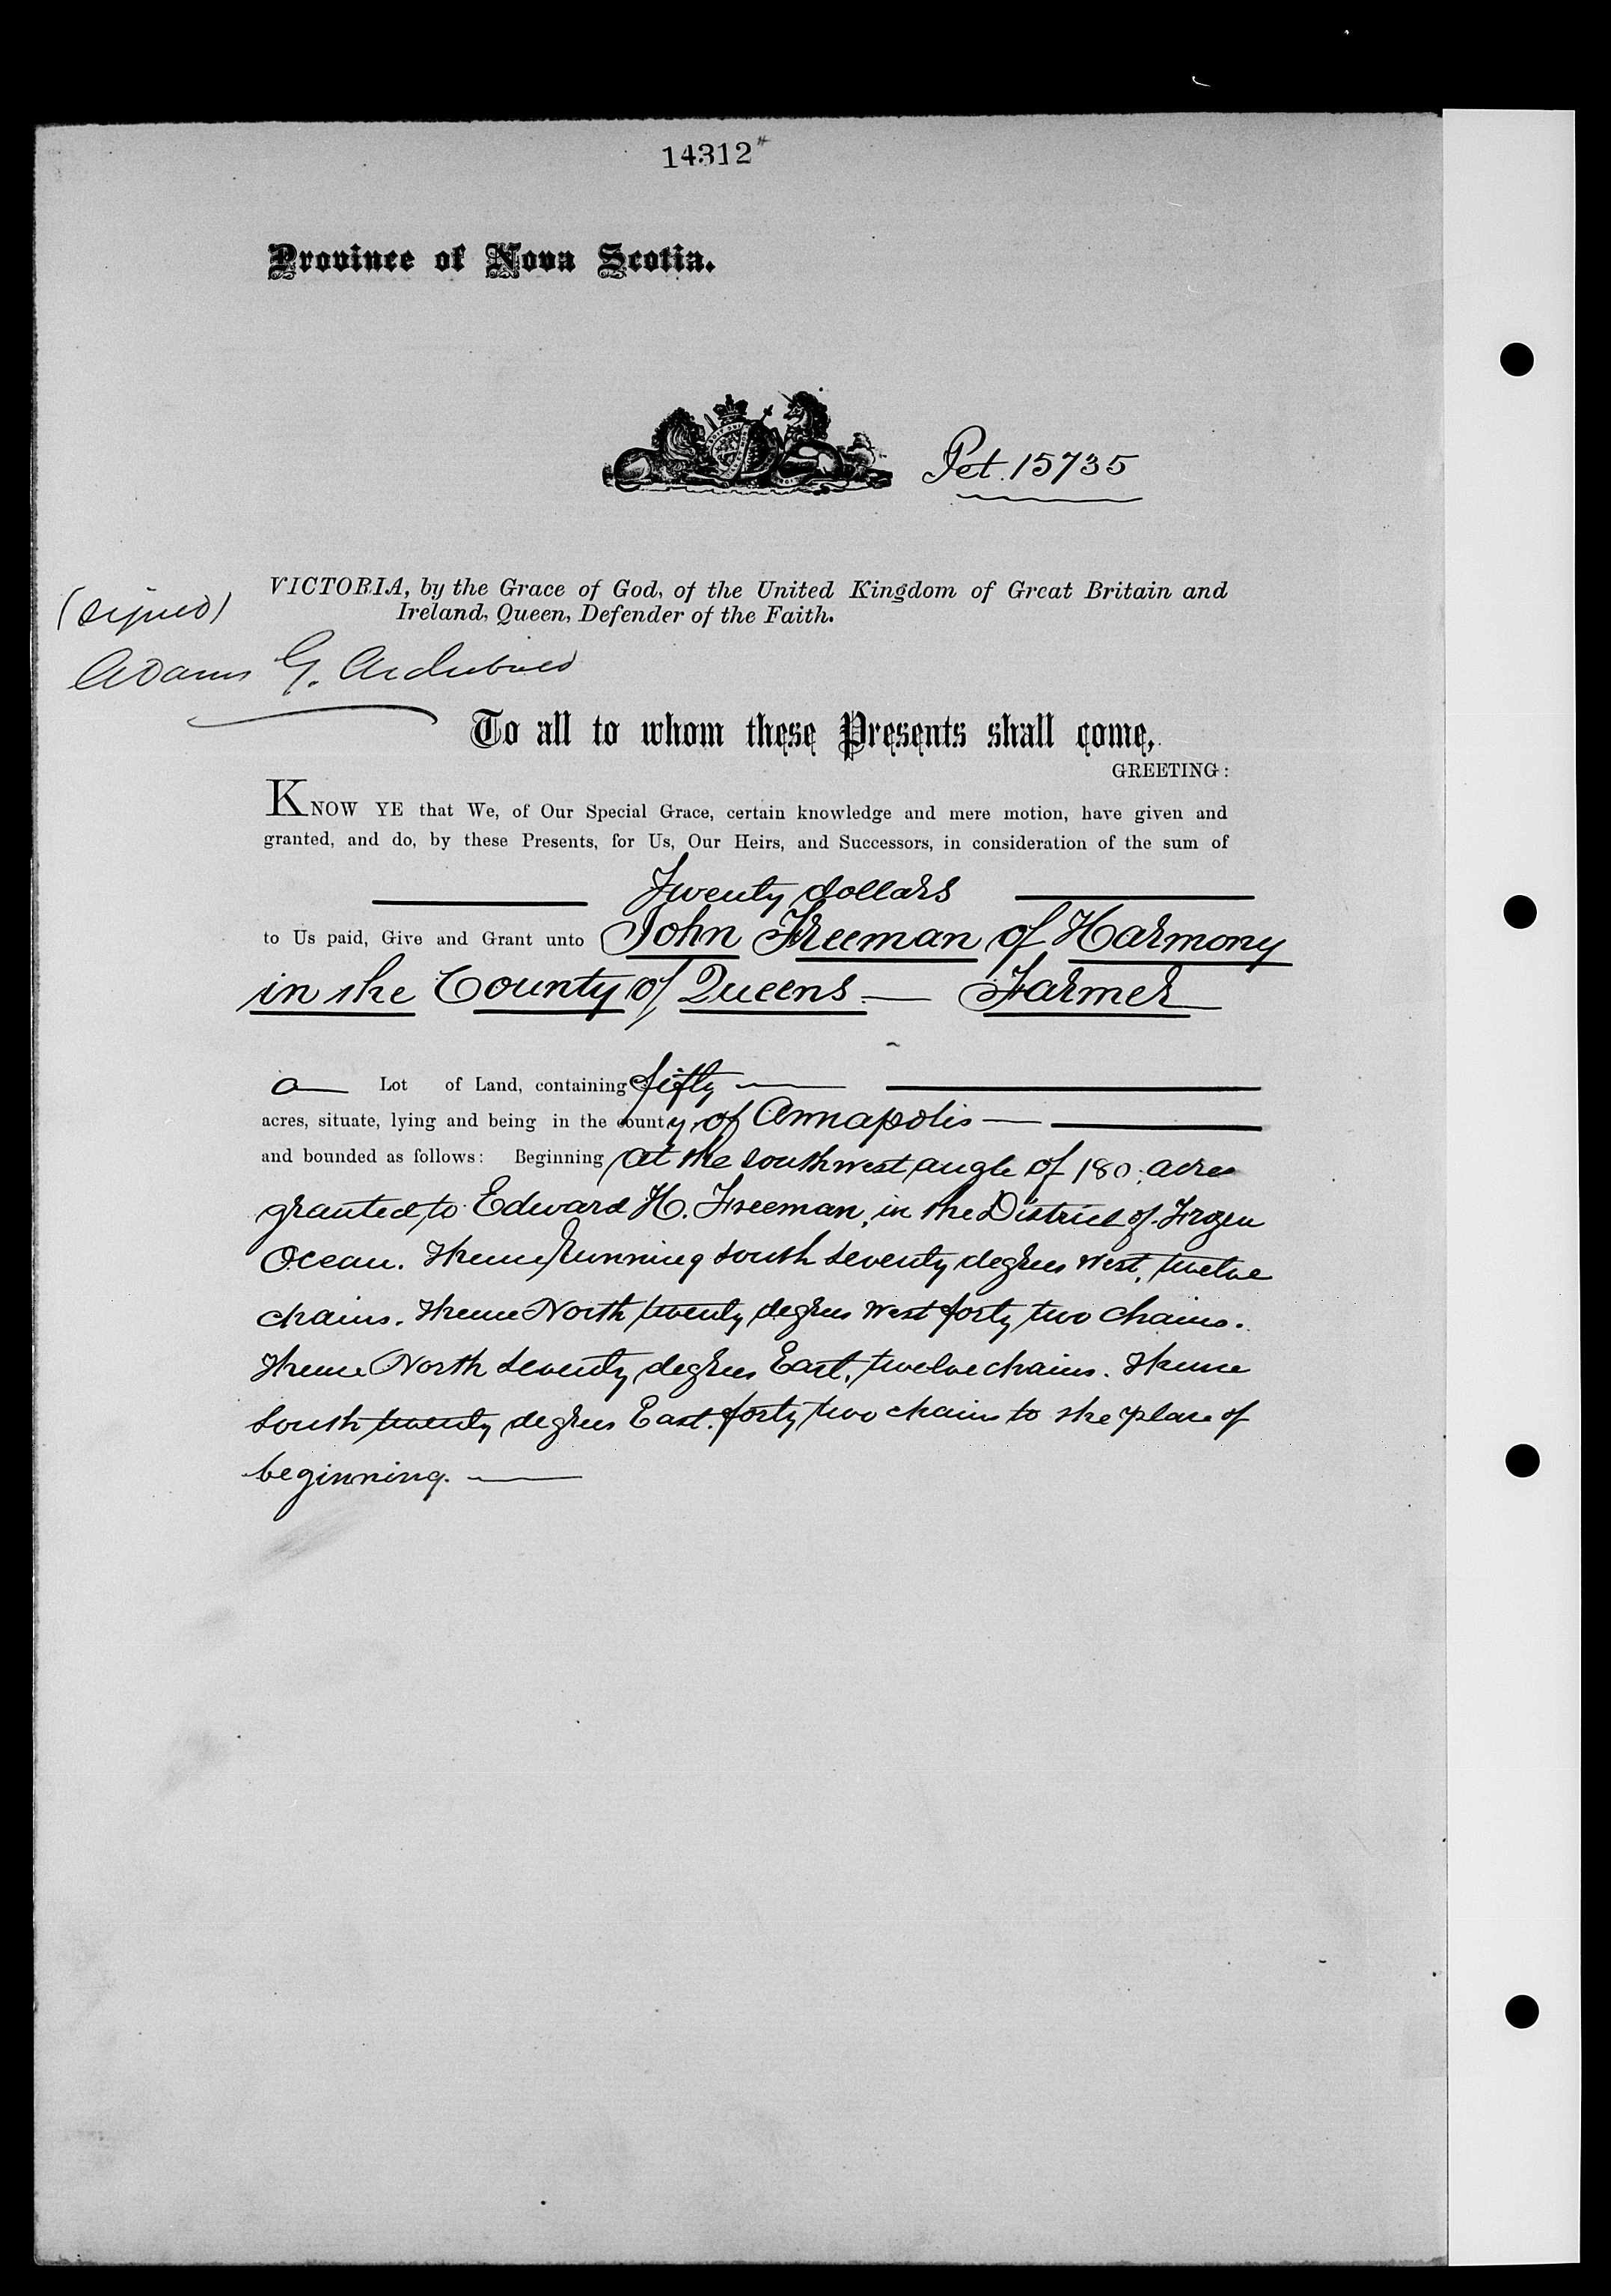 14312
Province of Nova Scotia.
Pet. 15735
VICTORIA, by the Grace of God, of the United Kingdom of Great Britain and
Ireland, Queen, Defender of the Faith.
(signed)
Adams G. Archibald
To all to whom these Presents shall come,
GREETING:
KNOW YE that We, of Our Special Grace, certain knowledge and mere motion, have given and
granted, and do, by these Presents, for Us, Our Heirs, and Successors, in consideration of the sum of
Twenty dollars
to Us paid, Give and Grant unto John Freeman of Harmony
in the County of Queens — Farmer
a — Lot of Land, containing fifty —
acres, situate, lying and being in the county of Annapolis —
and bounded as follows: Beginning at the southwest angle of 180. acres
granted to Edward H. Freeman, in the District of Frozen
Ocean. Thence running south seventy degrees West, twelve
chains. Thence North twenty degrees West forty two Chains.
Thence North seventy degrees East, twelve chains. Thence
South twenty degrees East. forty two chains to the place of
beginning. —